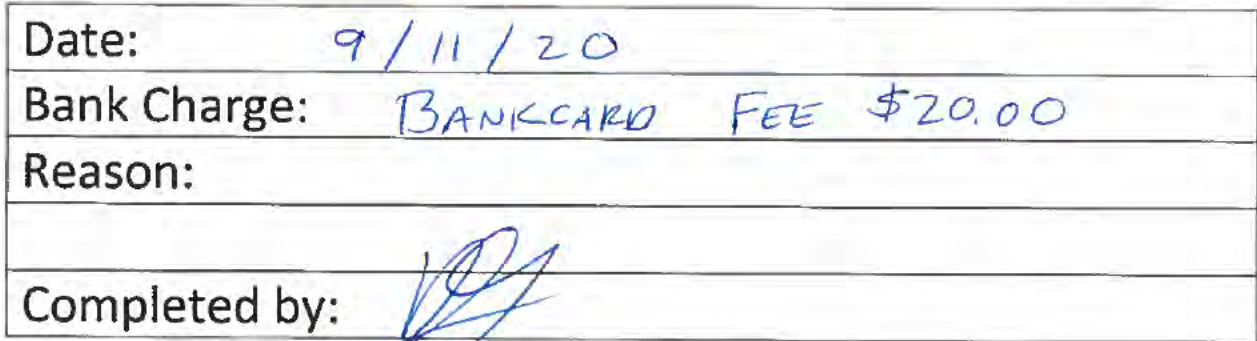 Date: 9/11/20
Bank Charge: BANKCARD FEE $20.00
Reason:
Completed by: